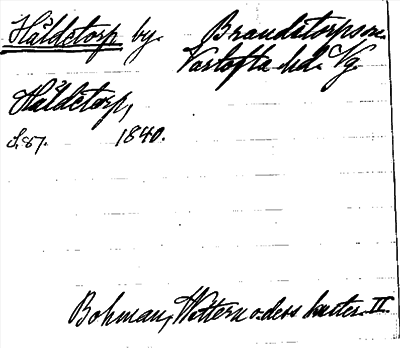 Håldetorp by. Brandstorp sn.
Vartofta hd. Vg.
Håldetorp,
S. 87. 1840.
Bohman, Wettern o. dess kuster. II.